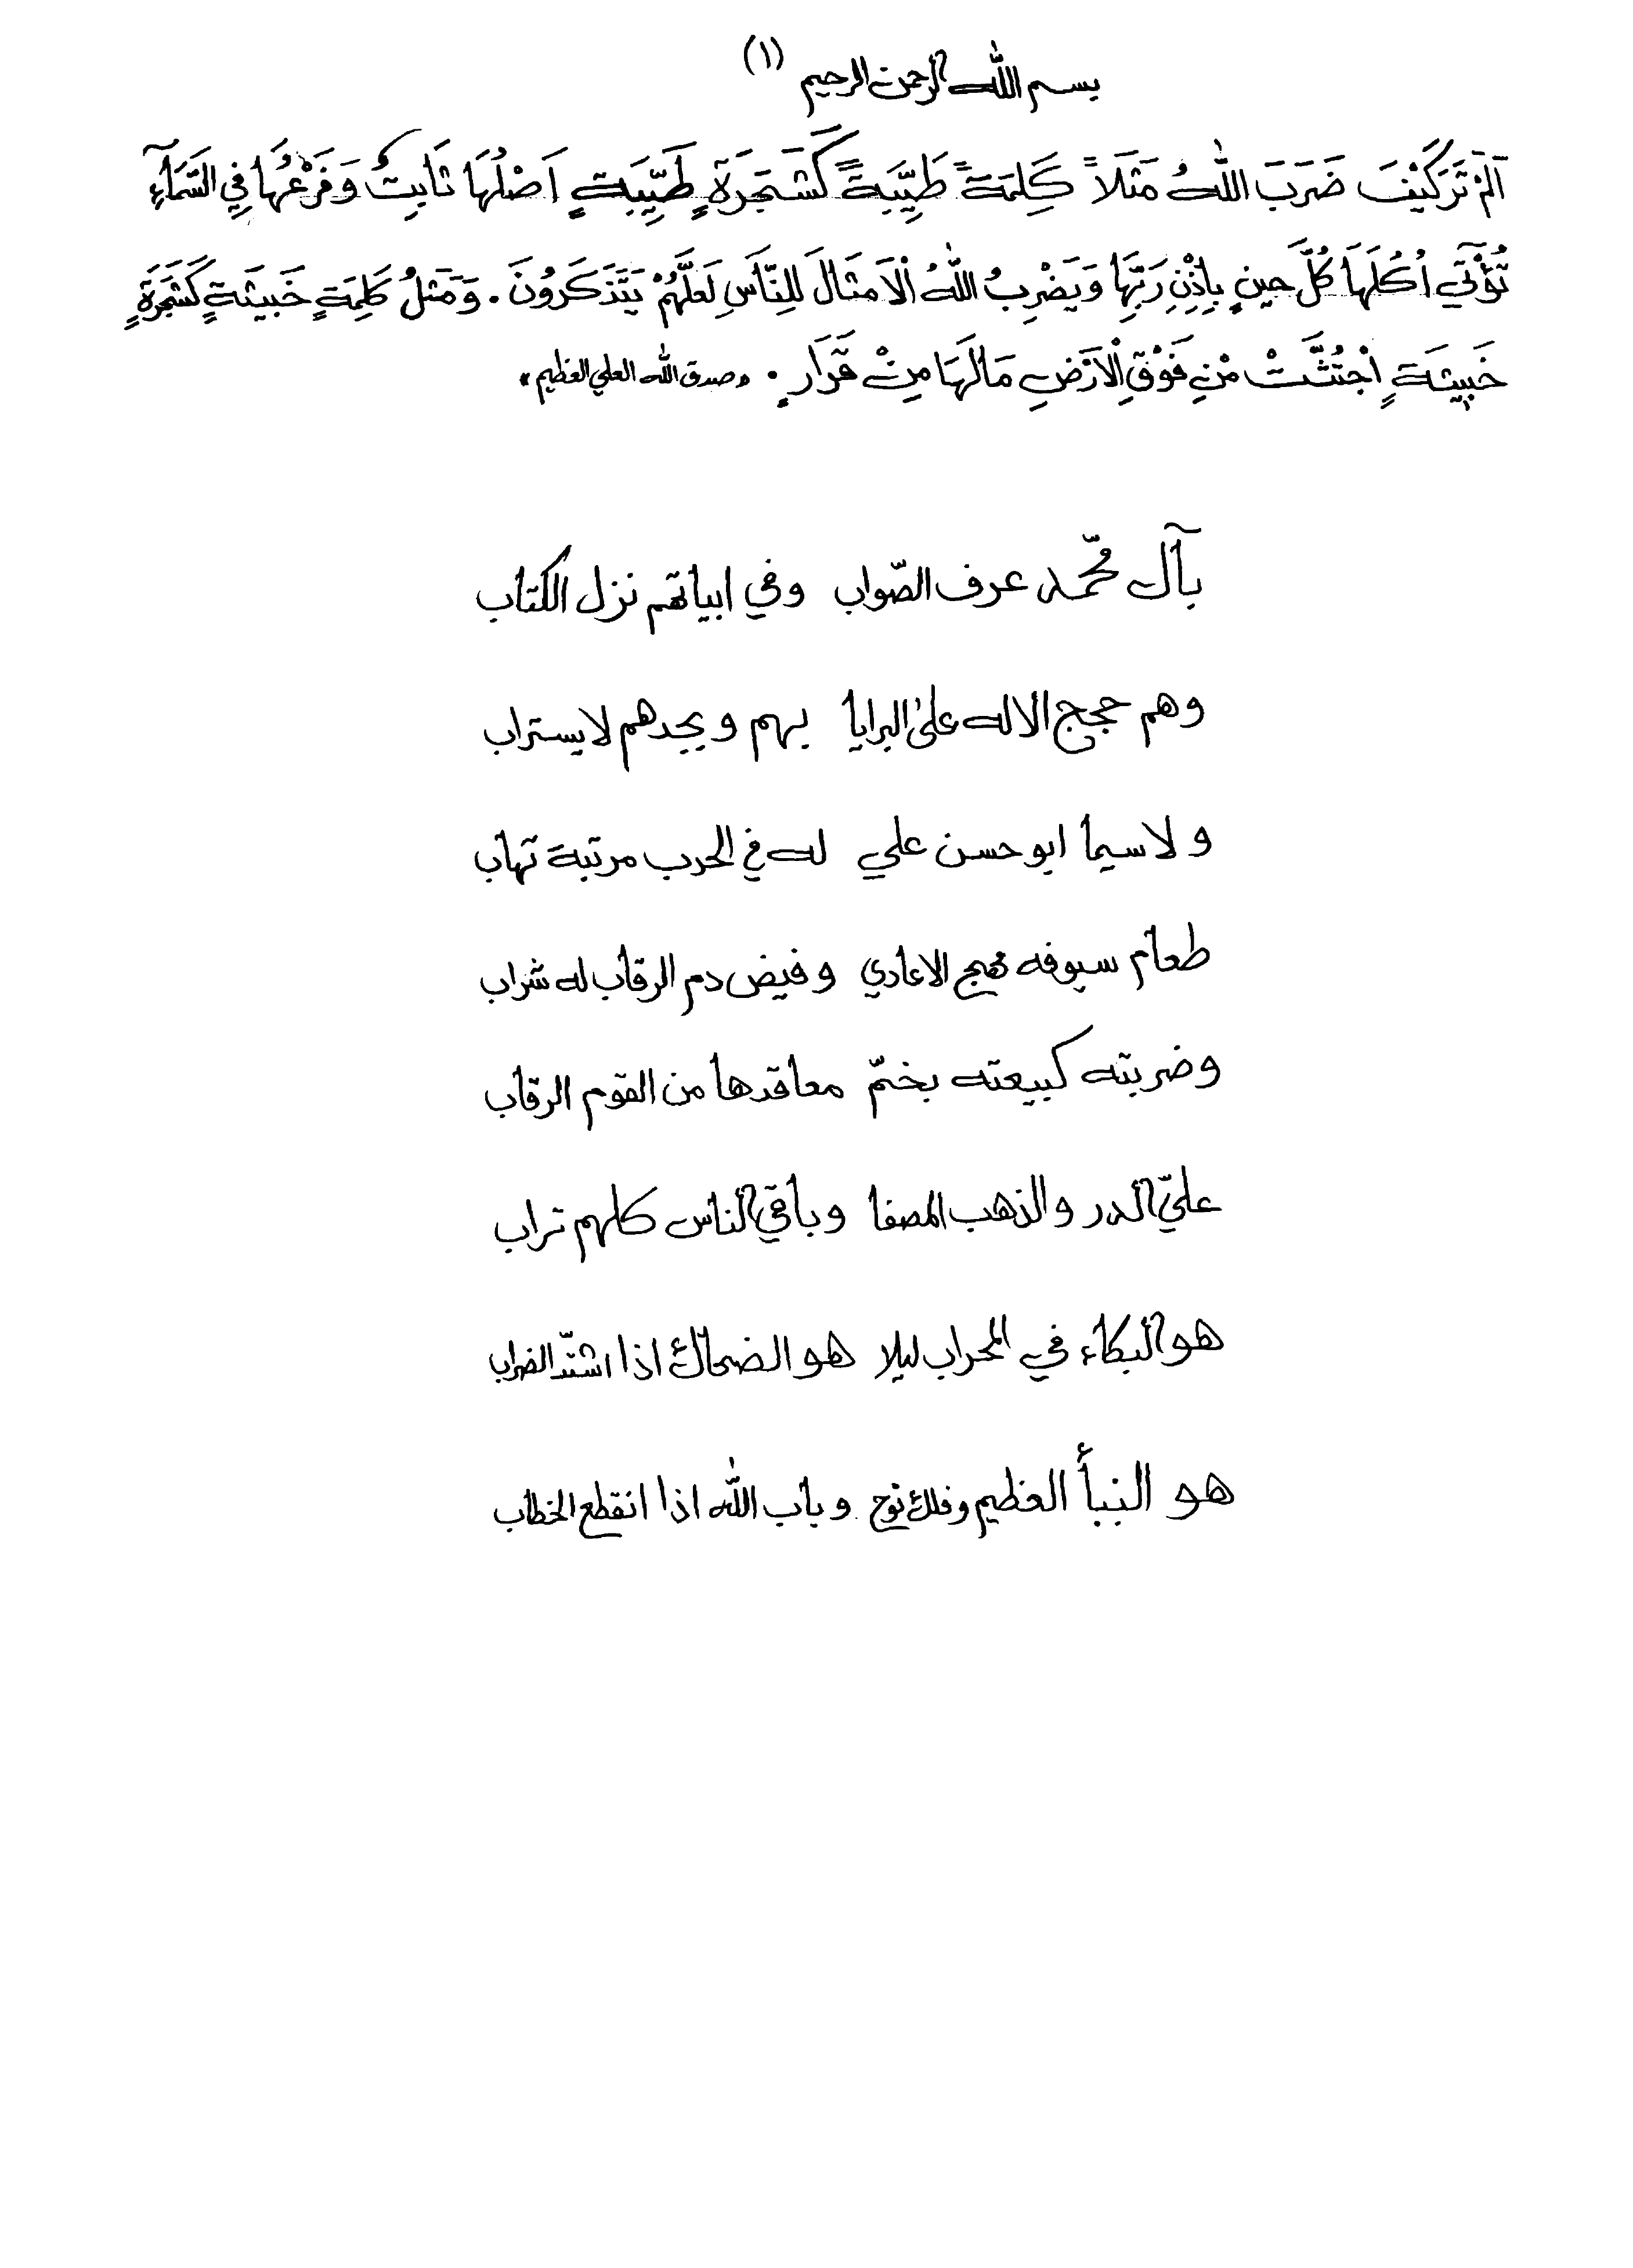 بسم الله الرحمن الرحيم (١)
اَلَمْ تَرَ كَيْفَ ضَرَبَ اللهُ مَثَلاً كَلِمَةً طَيِّبَةً كَشَجَرَةٍ طَيِّبَةٍ اَصْلُهَا ثَابِتٌ وَفَرْعُهَا فِي السَّمَآءِ
تُؤْتَي اُكُلَهَا كُلَّ حينٍ بِاِذْنِ رَبِّهَا وَيَضْرِبُ اللهُ اْلاَمثَالَ لِلنَّاسِ لَعَلَّهُمْ يَتَذَكَرُونَ . وَمَثلُ كَلِمَةٍ خَبيثَةٍ كَشَجَرَةٍ
خَبِيثَةٍ اْجتُثَّتْ مْنِ فَوْقِ اْلاَرْضِ مَالَهَا مِنْ قَرَارٍ . «صدق الله العلي العظيم»
بآل محمّد عرف الصّواب وفي ابياتهم نزل الكتاب
وهم حجج الاله على البرايا بهم وبجدهم لا يستراب
ولا سيما ابو حسن علي له في الحرب مرتبة تهاب
طعام سيوفه مهج الاعادي وفيض دم الرقاب له شراب
وضربته كبيعته بخمّ معاقدها من القوم الرقاب
عليّ الدر والذهب المصفا وباقي الناس كلهم تراب
هو البكاء في المحراب ليلا هو الضحاك اذا اشتدّ الضراب
هو النبأ العظيم وفلك نوح وباب الله اذا انقطع الخطاب